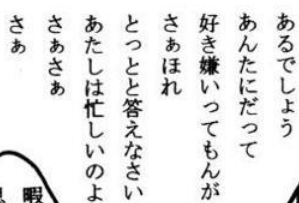 あるでしょう
あんたにだって
好き嫌いってもんが
さぁほれ
とっとと答えなさい
あたしは忙しいのよ
さぁさぁ
さぁ
暇